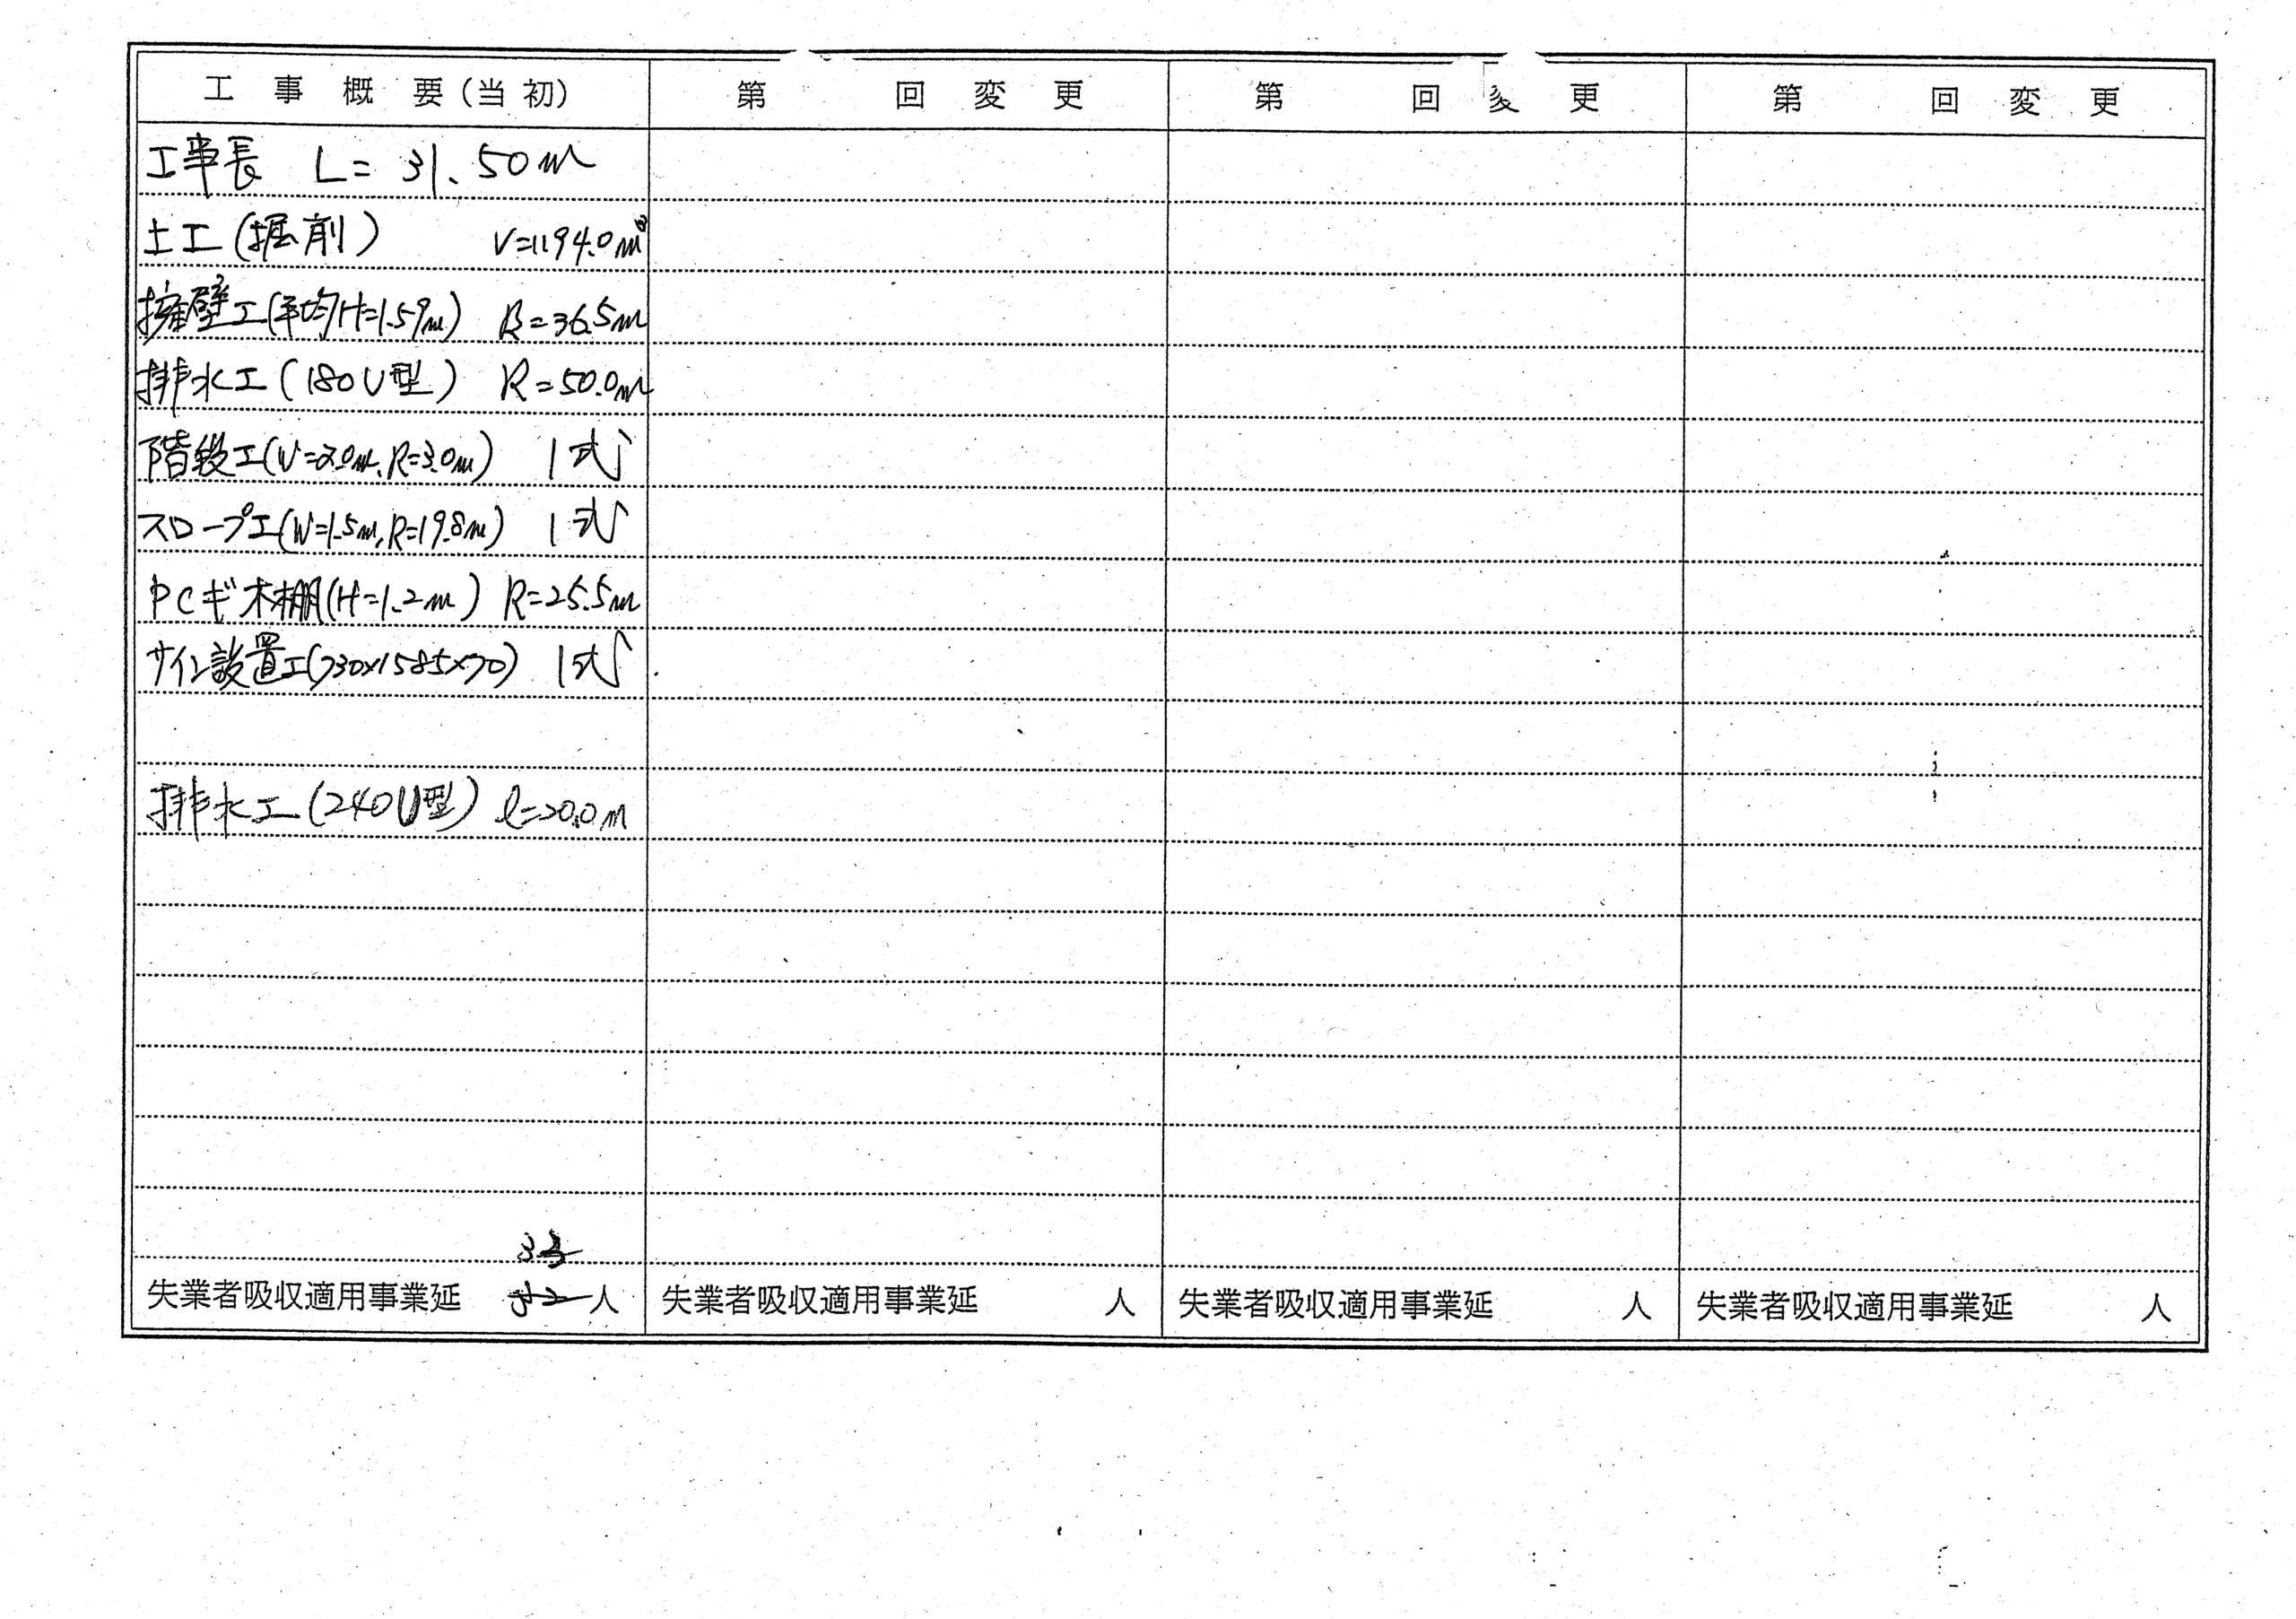 工事概要(当初) 第 回変更 第 回変更 第 回変更
工事長 L=31.50m
土工(掘削) V=1194.0m³
擁壁工(平均H=1.59m) ℓ=36.5m
排水工(180U型) ℓ=50.0m
階段工(W=2.0m,ℓ=3.0m) 1式
スロープ工(W=1.5m,ℓ=19.8m) 1式
PCギ木棚(H=1.2m) ℓ=25.5m
サイン設置工(730×1585×70) 1式
排水工(240U型) ℓ=20.0m
失業者吸収適用事業延 人 失業者吸収適用事業延 人 失業者吸収適用事業延 人 失業者吸収適用事業延 人